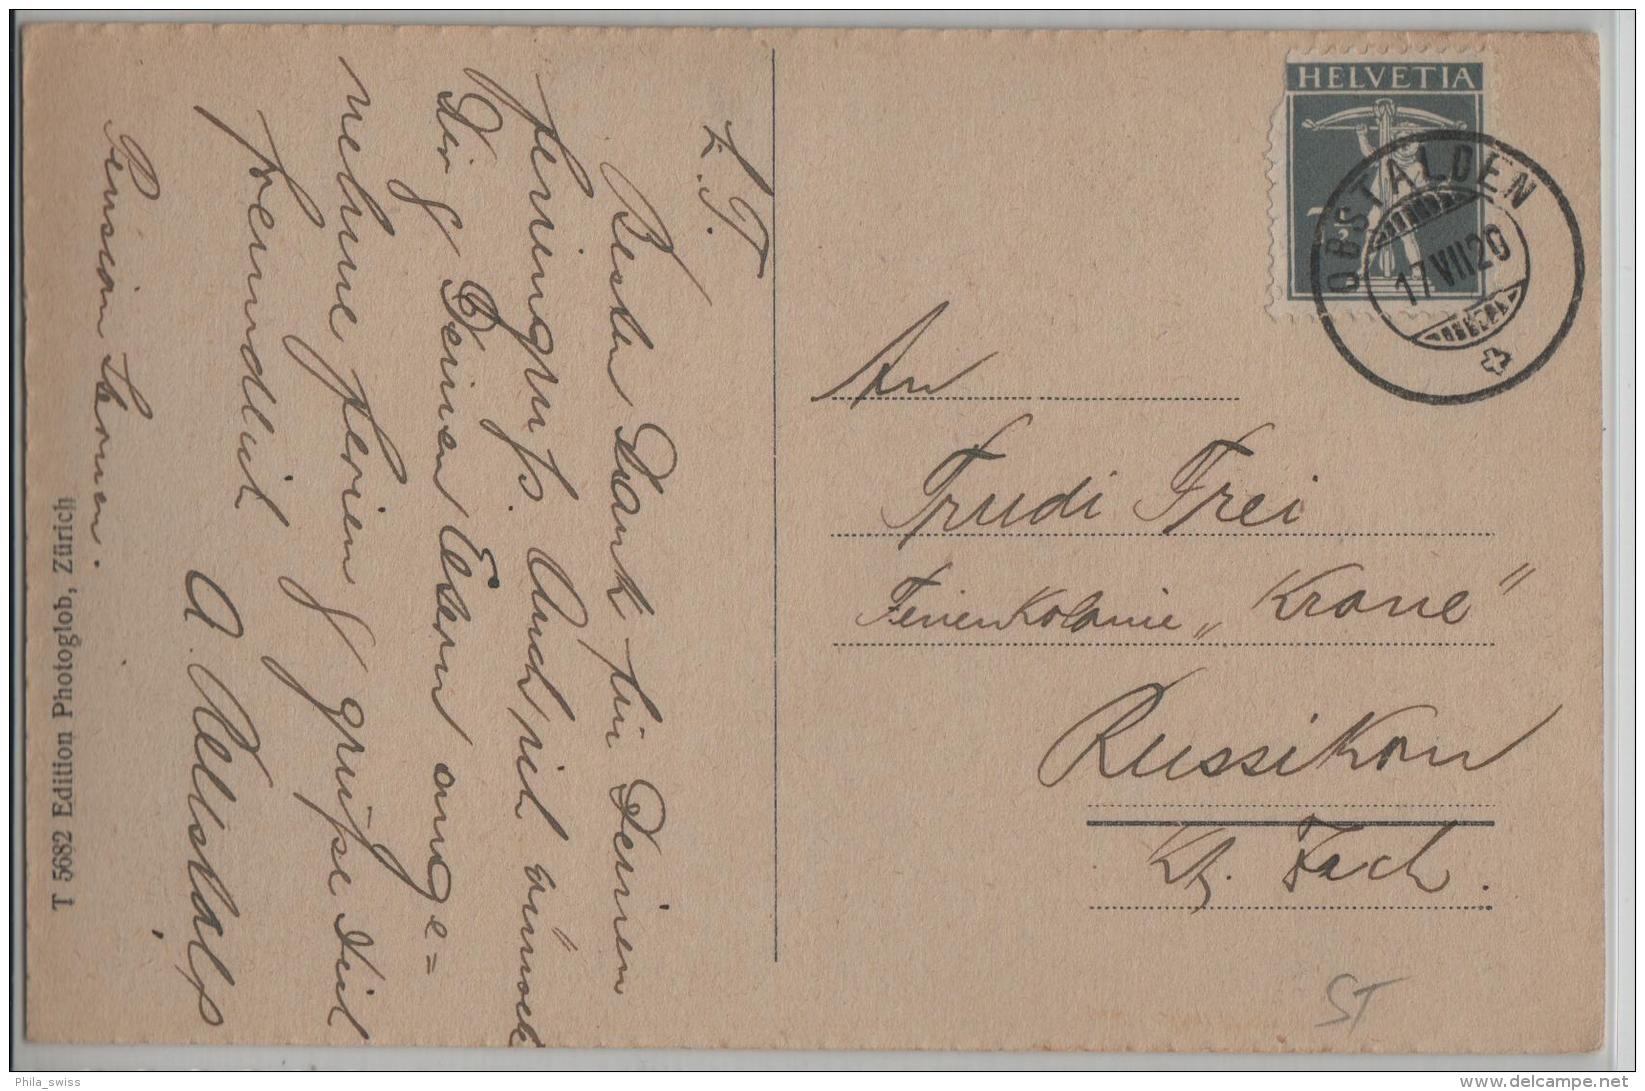 L. T.
Besten Dank für Deinen
feriengruß. Auch ich wünsche
Dir & Deinen Eltern ange=
nehme ferien & grüße Dich
freundlich
A.
Pension
T 5682 Edition Photoglob, Zürich
HELVETIA
7½
OBSTALDEN
17 VIII 20
An
Trudi Frei
Ferienkolonie „Krone"
Russikon
Kt. Zürich.
ST
Phila_swiss
www.delcampe.net